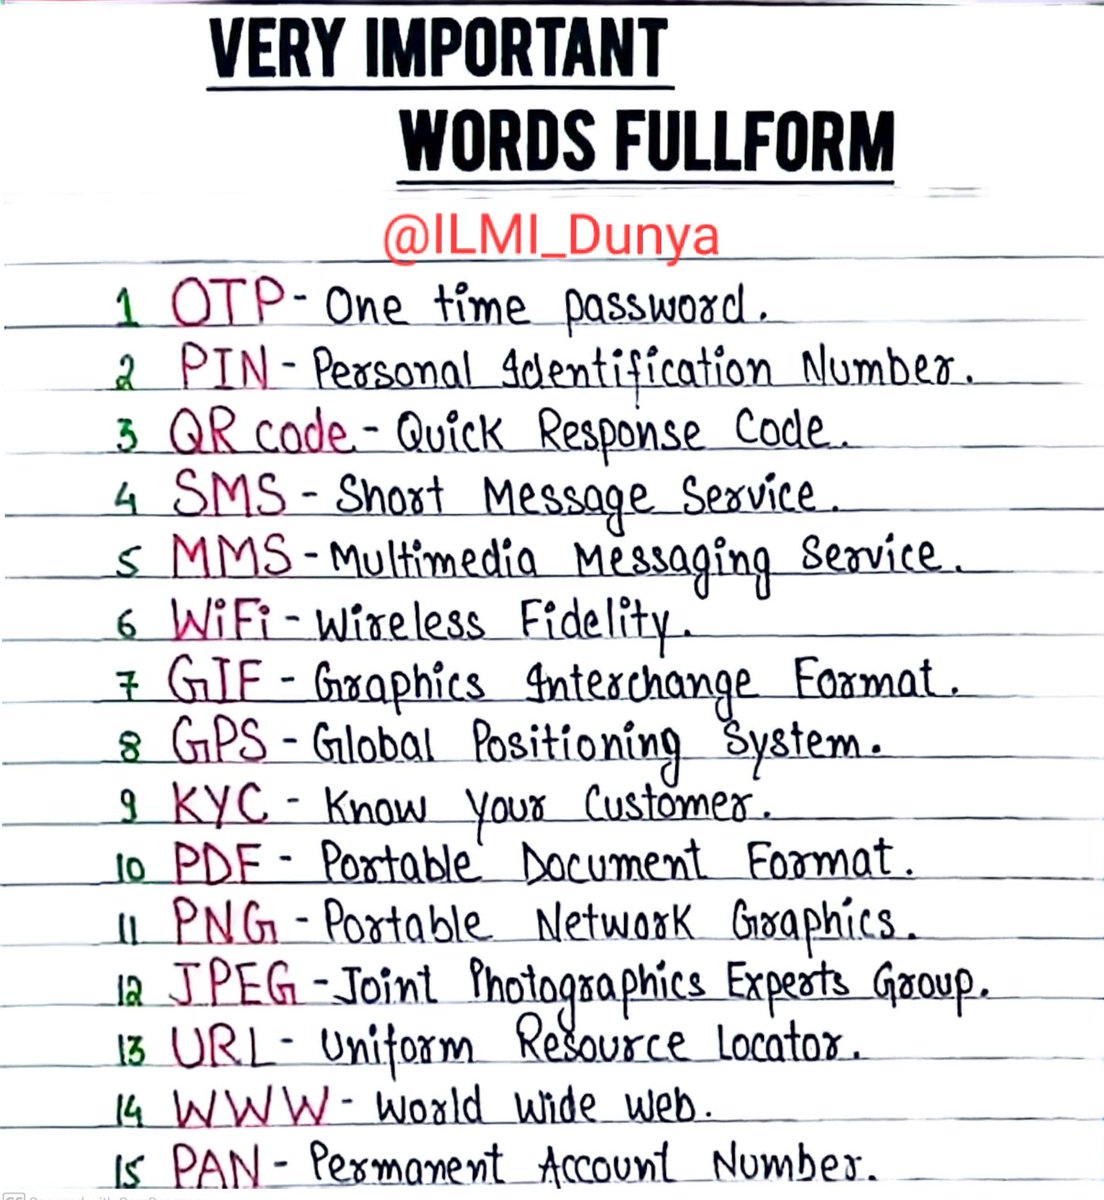 VERY IMPORTANT
WORDS FULLFORM
@ILMI_Dunya
1 OTP - One time password.
2 PIN - Personal Identification Number.
3 QR code - Quick Response Code.
4 SMS - Short Message Service.
5 MMS - Multimedia Messaging Service.
6 WiFi - Wireless Fidelity.
7 GIF - Graphics Interchange Format.
8 GPS - Global Positioning System.
9 KYC - Know your Customer.
10 PDF - Portable Document Format.
11 PNG - Portable Network Graphics.
12 JPEG - Joint Photographics Experts Group.
13 URL - Uniform Resource Locator.
14 WWW - World Wide Web.
15 PAN - Permanent Account Number.